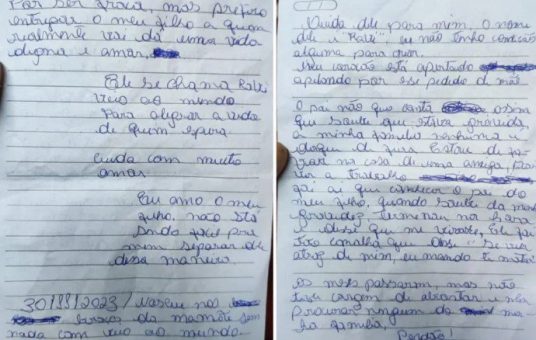 Por ser
mas prefiro
entregar o meu filho a quem
realmente vai dá uma vida
digna e amar,
Ele se chama Ravi
veio ao mundo
Para alegrar a vida
de quem espera
Cuida com muito
amor
Eu amo o meu
filho, não está
sendo fácil pra
mim separar dele
dessa maneira
2023/ Nasceu nos
braços da mamãe sem
nada com veio ao mundo
Cuida dele para mim, O nome
dele é "Ravi", eu não tenho condição
alguma para criar
Meu coração está apertado
por esse pedido de mãe
O pai não quer
que soube que estava grávida,
a minha família nenhuma é
daqui de fora Estou de
na casa de uma amiga,
vir a trabalho
foi ai que conheci o pai do
meu filho, quando soube da minha
Gravidez, terminou na hora
e disse que me virasse, Ele foi
tão canalha que disse "Se vier
atrás de mim, eu mando te matar"
os meses passaram, mas não
tive coragem de abortar e nem
procurar ninguém da
família,
Perdão!